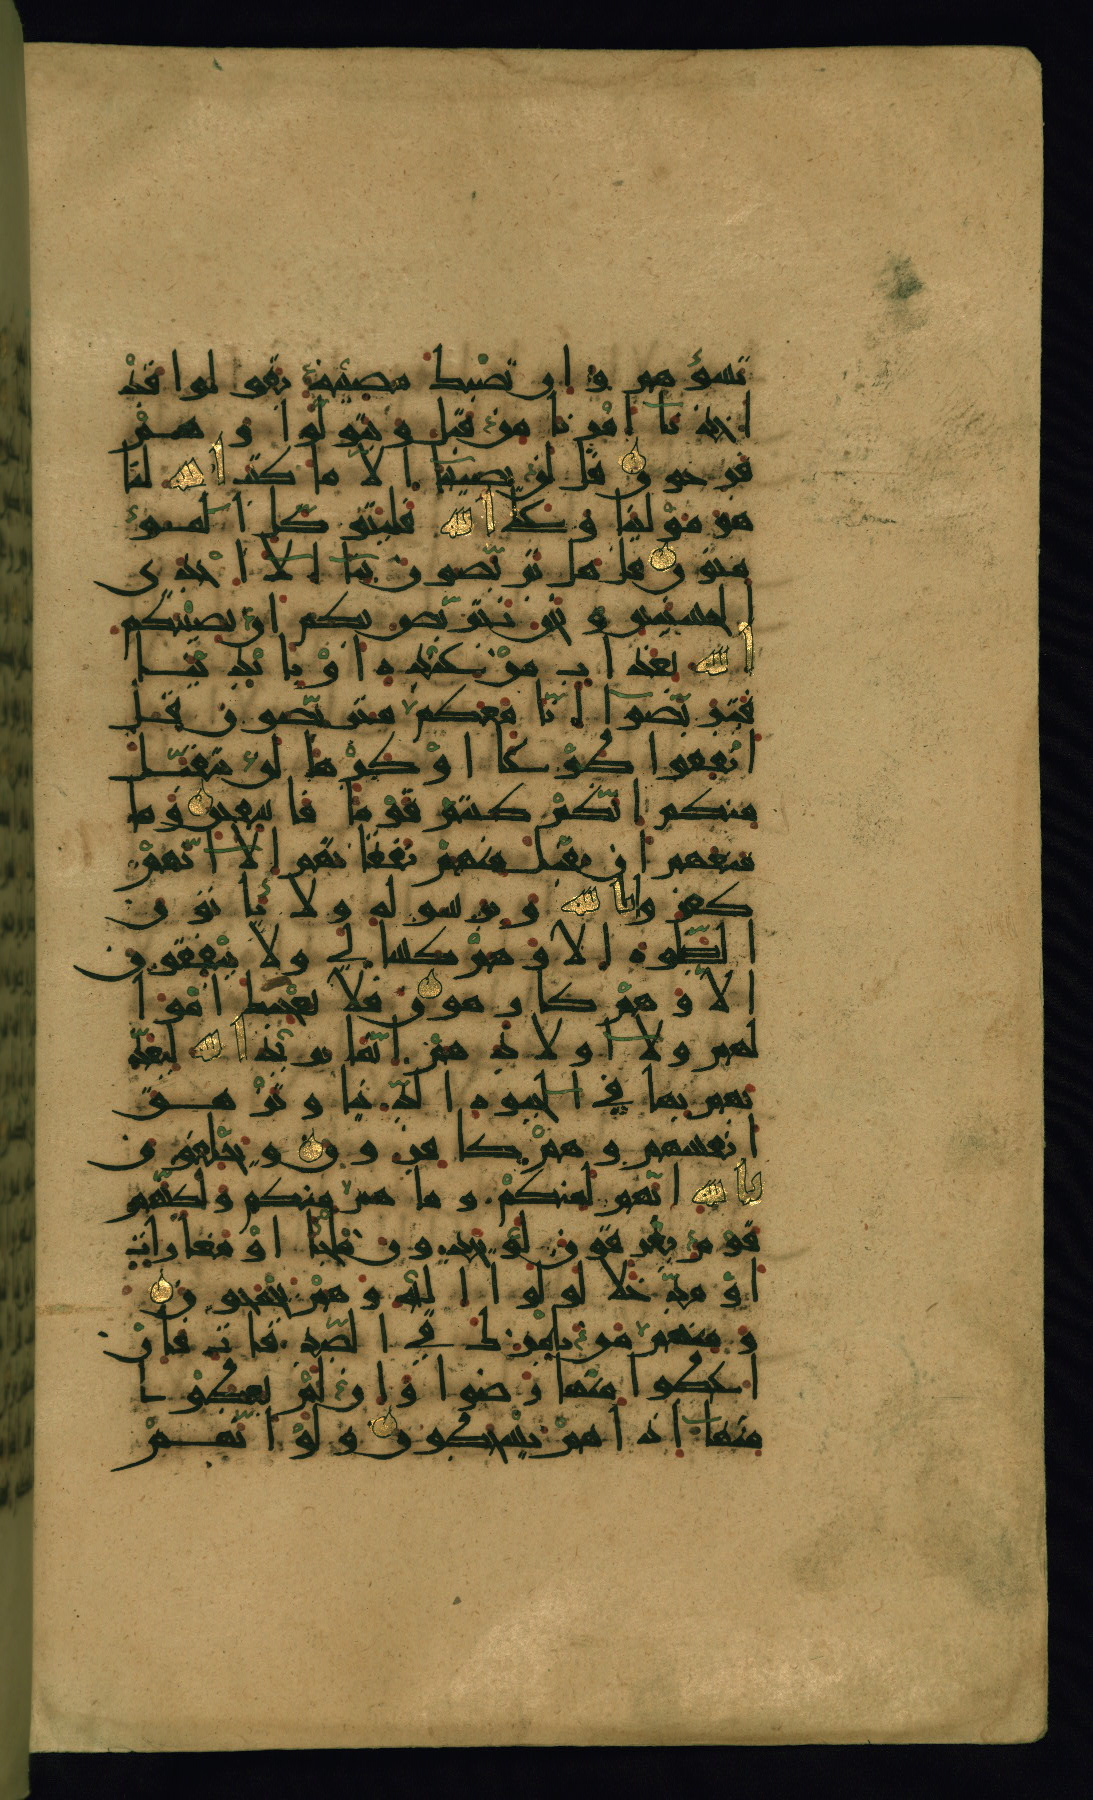 تسؤهم وان تصبك مصيبة يقولوا قد
اخذنا امرنا من قبل ويتولوا وهم
فرحون قل لن يصيبنا الا ما كتب الله لنا
هو مولينا وعلى الله فليتوكل المؤ
منون قل هل تربصون بنا الا احدى
الحسنيين ونحن نتربص بكم ان يصيبكم
الله بعذاب من عنده او بايدينا
فتربصوا انا معكم متربصون قل
انفقوا طوعا او كرها لن يتقبل
منكم انكم كنتم قوما فاسقين وما
منعهم ان تقبل منهم نفقاتهم الا انهم
كفروا بالله وبرسوله ولا ياتون
الصلوة الا وهم كسالى ولا ينفقون
الا وهم كارهون فلا تعجبك اموا
لهم ولا اولادهم انما يريد الله ليعذ
بهم بها في الحيوة الدنيا وتزهق
انفسهم وهم كافرون ويحلفون
بالله انهم لمنكم وما هم منكم ولكنهم
قوم يفرقون لو يجدون ملجا او مغارات
او مدخلا لولوا اليه وهم يجمحون
ومنهم من يلمزك في الصدقات فان
اعطوا منها رضوا وان لم يعطوا
منها اذا هم يسخطون ولو انهم